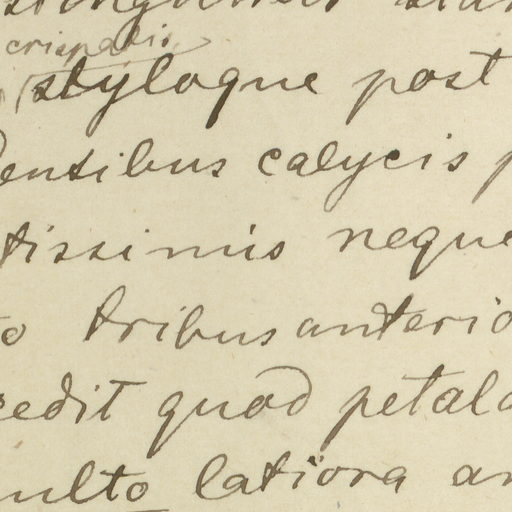 crispatis
styloque post
dentibus calycis
tissimis neque
tribus anterio
cedit quod petala
multo latiora an